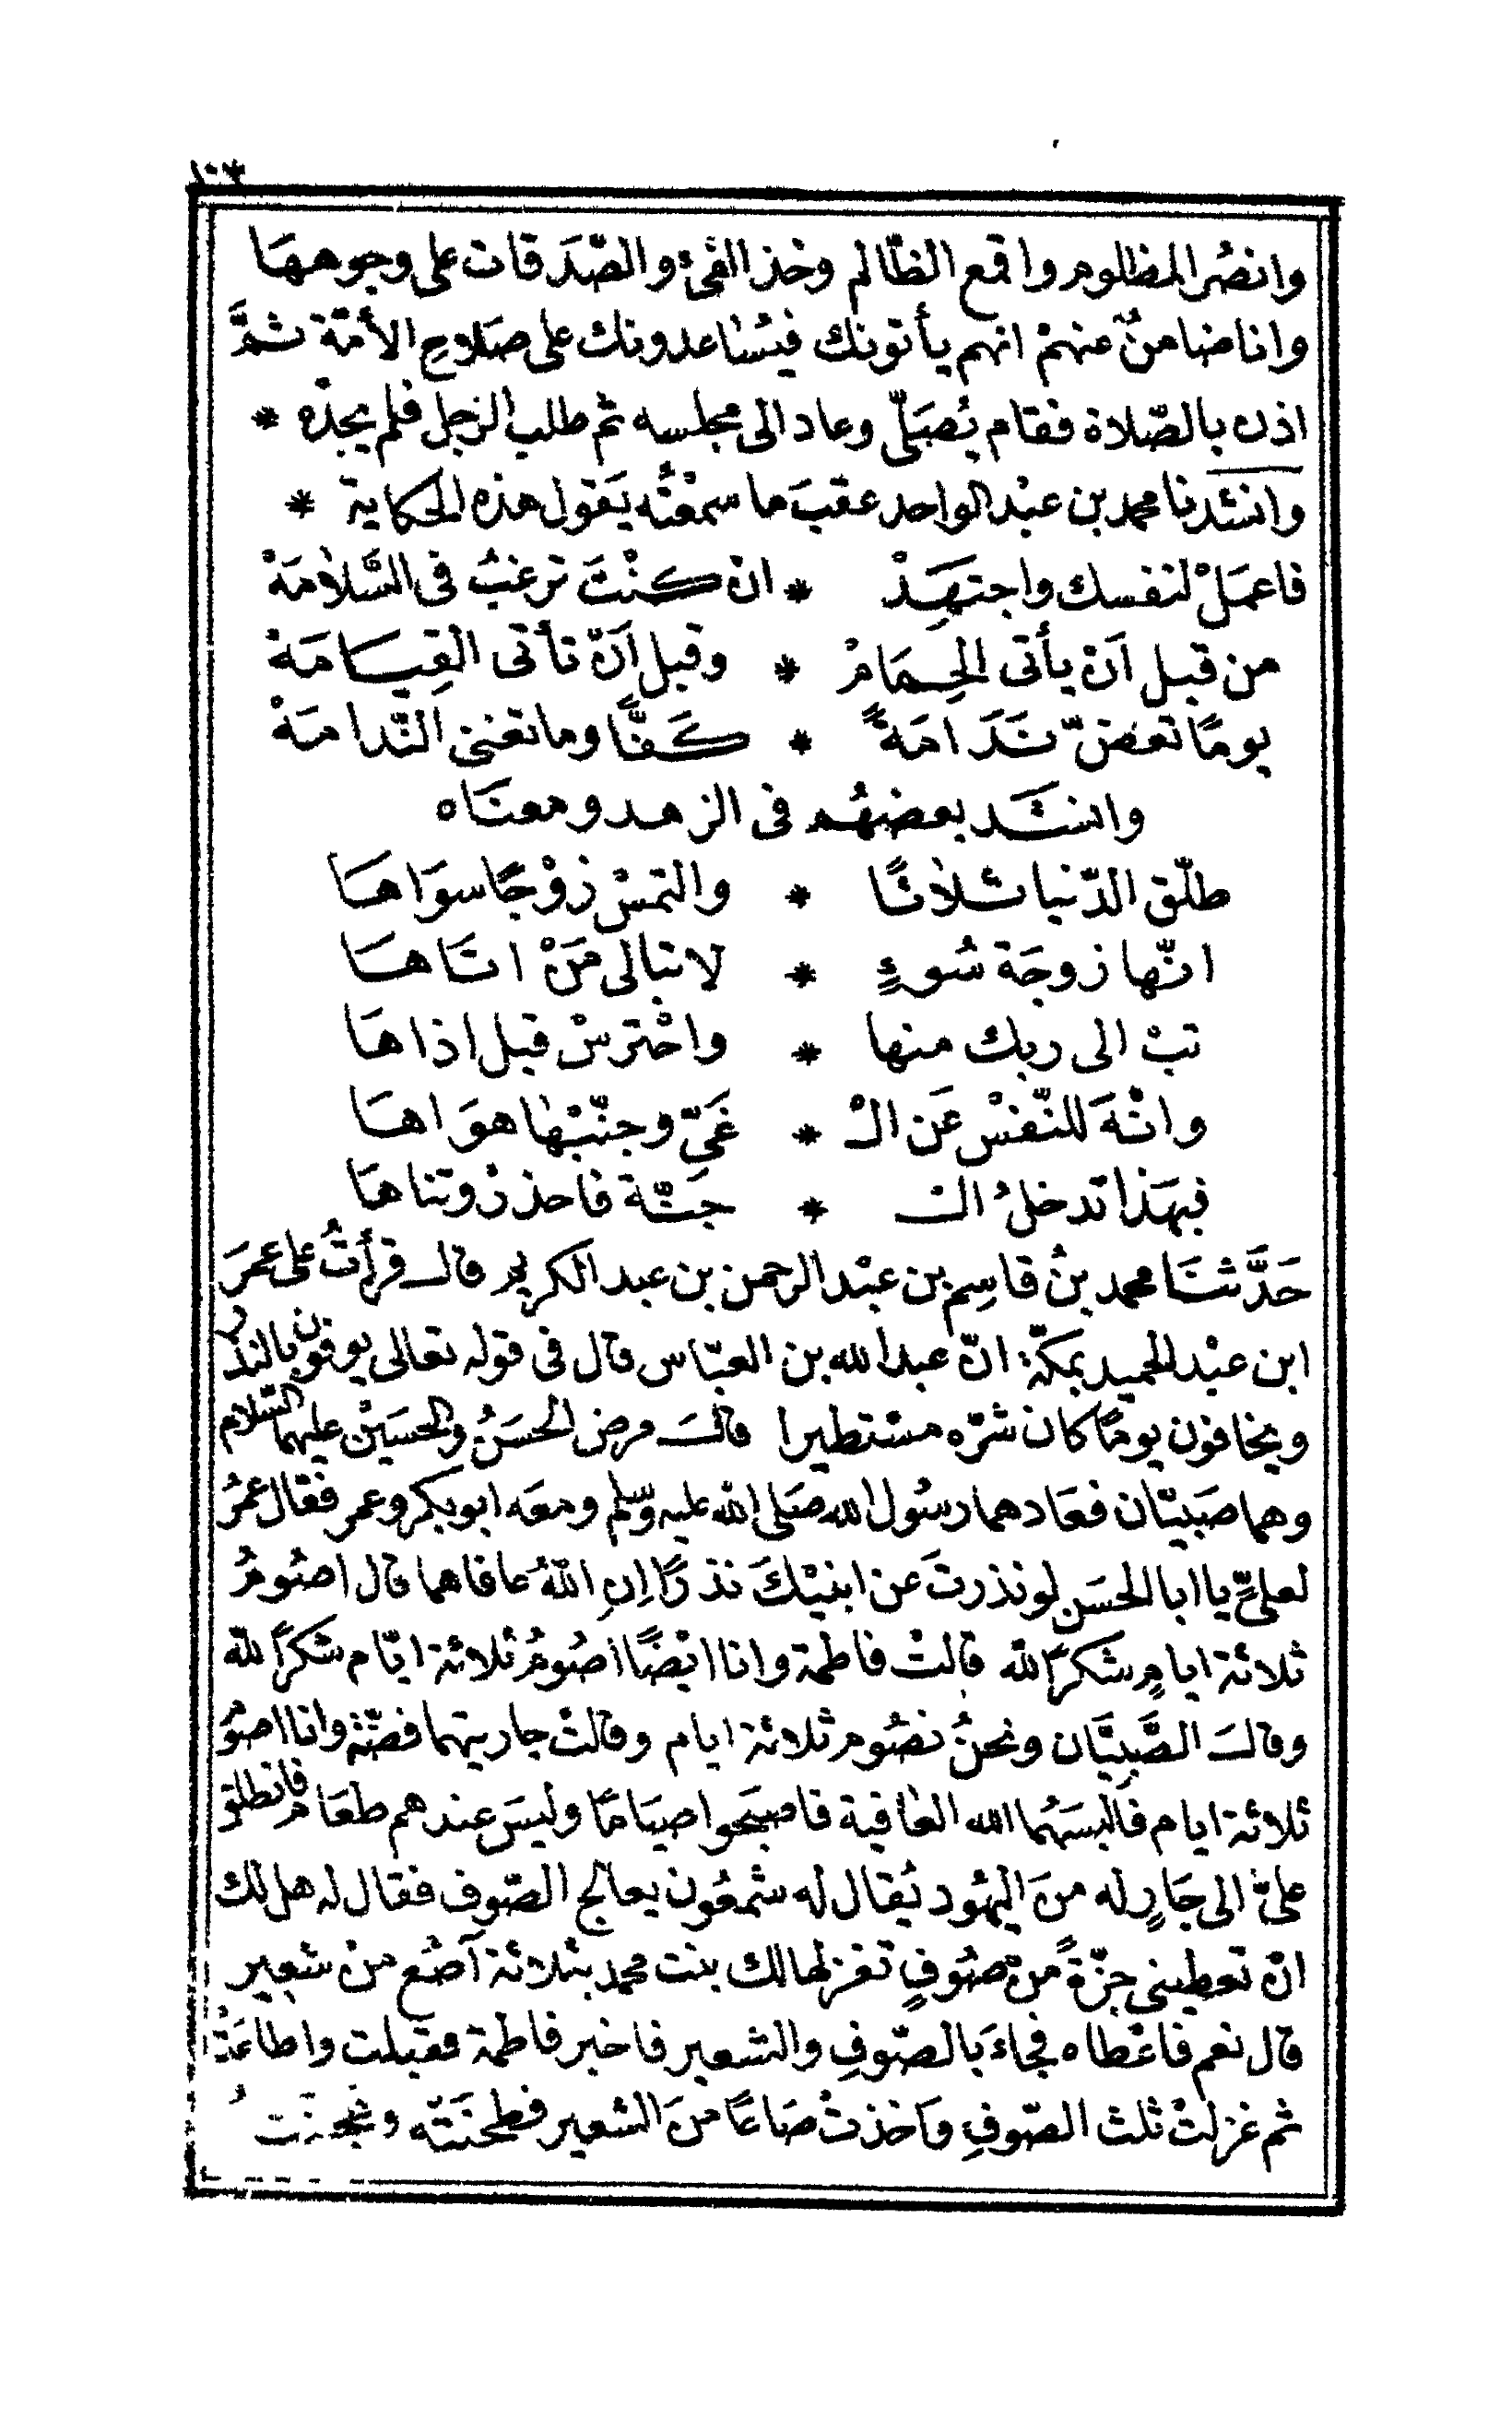 ١٠٣
وانصُر المظلوم واقمع الظّالم وخذ الفئ والصّدَقات على وجوههَا
وانا ضامنٌ منهمْ انهم يأتونك فيسُاعدونك على صَلاحِ الأمّة ثمَّ
اذن بالصّلاة فقام يُصَلّى وعاد الى مجلسه ثم طلب الرّجل فلم يجدْه *
وانشدنا محمد بن عبْد الواحد عقبَ ما سمعْتُه يَقول هذه الحكاية *
فاعمَلْ لنفسك واجتهِدْ * انْ كنْتَ ترغبُ فى السَّلامَهْ
من قبل اَنْ يأتى الحِمَامْ * وقبل اَنْ تأتى القِيَامَهْ
يومًا تعضّ نَدَامَةً * كَفًّا وما تغنى النّدامَهْ
وانشَد بعضهُم فى الزهد ومعنَاه
طلّق الدّنيا ثلاثًا * والتمسْ زوْجًا سوَاهَا
انّها زوجَة سُوءٍ * لا تبالى مَنْ اتَاهَا
تبْ الى ربك منها * واحْترسْ قبل اذاهَا
وانْهَ للنّفسْ عَن الْـ * غَىِّ وجنّبْها هوَاهَا
فبهَذا تدخلُ الـ * جَنّة فاحذرْ وتناهَا
حَدَّثنَا محمد بنُ قاسِم بن عبْد الرحمن بن عبد الكريم قال قرأتُ على عمرَ
ابن عبْد الحميد بمكّة انّ عبد الله بن العبّاس قال فى قوله تعالى يوفون بالنذر
ويخافون يومًا كان شرّه مسْتطيرا قالَ مرض الحسَنُ والحسَيْن عليهما السّلام
وهما صَبيّان فعَادهما رسُول الله صَلى الله عليه وسّلم ومعَه ابو بكر وعمر فقال عمرُ
لعلىّ يا ابا الحسَن لو نذرتَ عن ابنيْكَ نذرًا اِن اللهُ عافاهما قال اصُومُ
ثلاثة ايامٍ شكرًا لله قالتْ فاطمة وانا ايْضًا اصُومُ ثلاثة ايّام شكرًا لله
وقالَ الصَّبِيَّان ونحنُ نصُوم ثلاثة ايام وقالتْ جاريتهما فضّة وانا اصوُ
ثلاثة ايام فاَلبسَهُما الله العافية فاصبَحوا صيَامًا وليسَ عندهم طعَام فانطلق
علىّ الى جَارٍ له منَ اليهُود يُقال له شمعُون يعالج الصّوف فقال له هل لك
انْ تعطينى جزّةً منْ صُوفٍ تغزلها لك بنت محمد بثلاثة آصُع منْ شعير
قال نعم فاعْطاه فجاءَ بالصّوفِ والشعير فاخبر فاطمة فقبلت واطاعَتْ
ثم غزلتْ ثلث الصّوفِ واَخذتْ صَاعًا منَ الشعير فطحنَتْه وعجنَتهُ